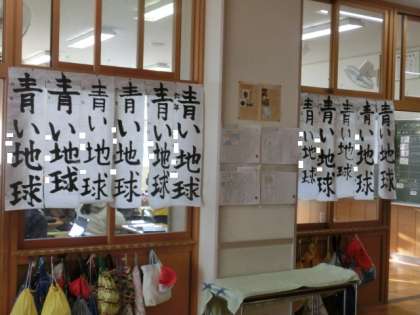 青い地球
青い地球
青い地球
青い地球
青い地球
青い地球
青い地球
青い地球
青い地球
青い地球
青い地球